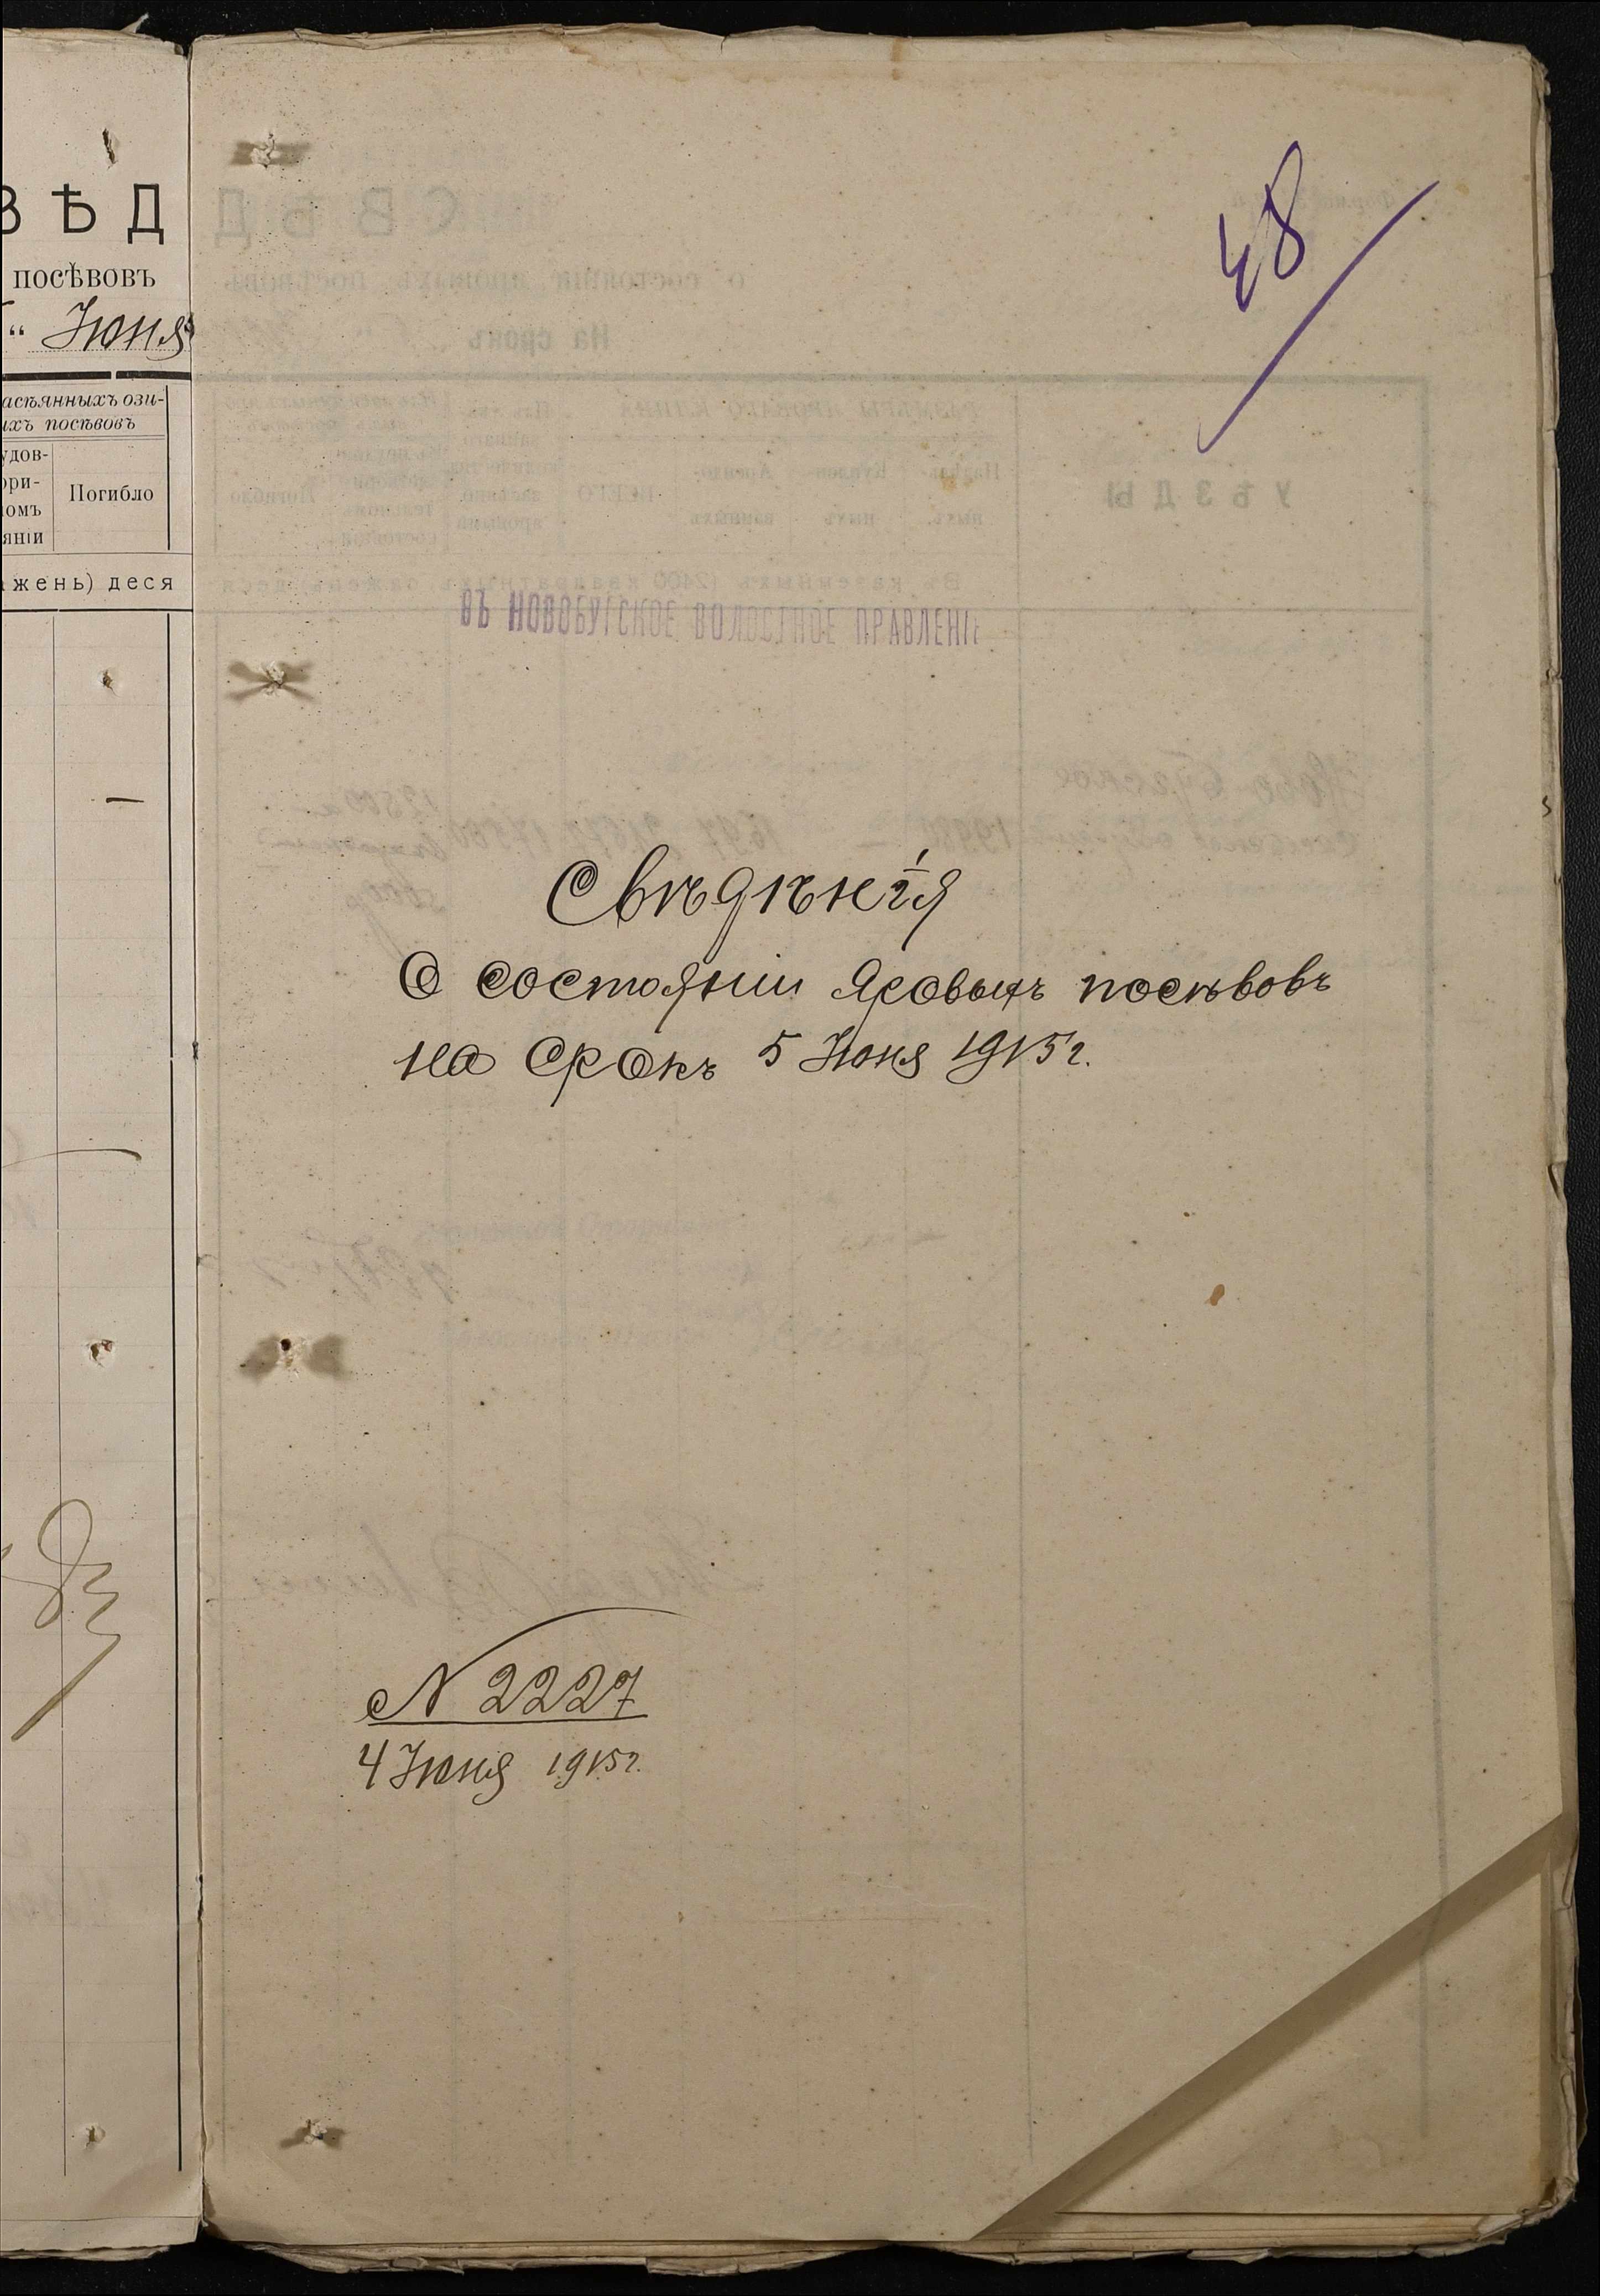 ВѢД
посѣвовъ
“ Іюня
асѣянныхъ ози-
ыхъ посѣвовъ
удов-
ори-
омъ
яніи
Погибло
жень) деся
48
ВЪ НОВОБУГСКОЕ ВОЛОСТНОЕ ПРАВЛЕНІЕ
Свѣдѣнія
О состояніи яровыхъ посѣвовъ
на срокъ 5 Іюня 1915 г.
N 2227
4 Іюня 1915 г.